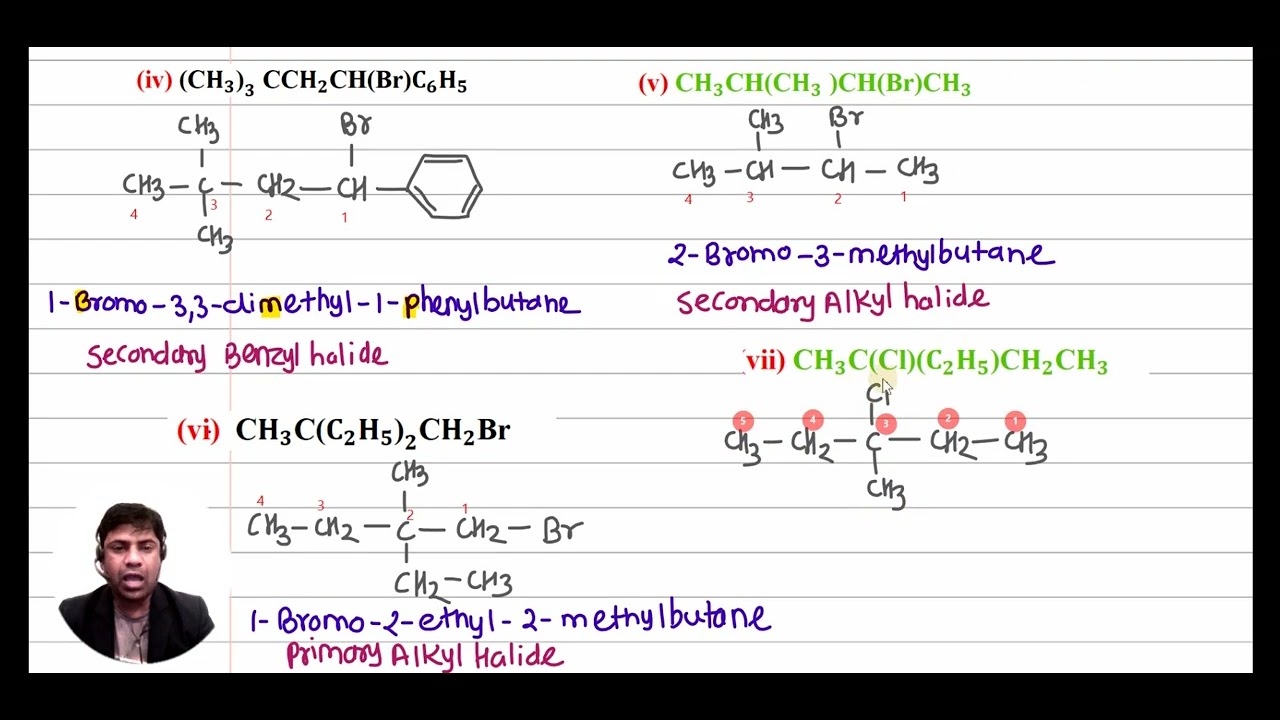 (iv) (CH₃)₃ CCH₂CH(Br)C₆H₅
CH3 Br
CH3 – C – CH2 – CH –
4 3 2 1
CH3
1-Bromo-3,3-dimethyl-1-phenylbutane
Secondary Benzyl halide
(v) CH₃CH(CH₃ )CH(Br)CH₃
CH3 Br
CH3 – CH – CH – CH3
4 3 2 1
2-Bromo-3-methylbutane
Secondary Alkyl halide
(vi) CH₃C(C₂H₅)₂CH₂Br
CH3
4 3 2 1
CH3 – CH2 – C – CH2 – Br
CH2 – CH3
1-Bromo-2-ethyl-2-methylbutane
Primary Alkyl Halide
vii) CH₃C(Cl)(C₂H₅)CH₂CH₃
Cl
5 4 3 2 1
CH3 – CH2 – C – CH2 – CH3
CH3